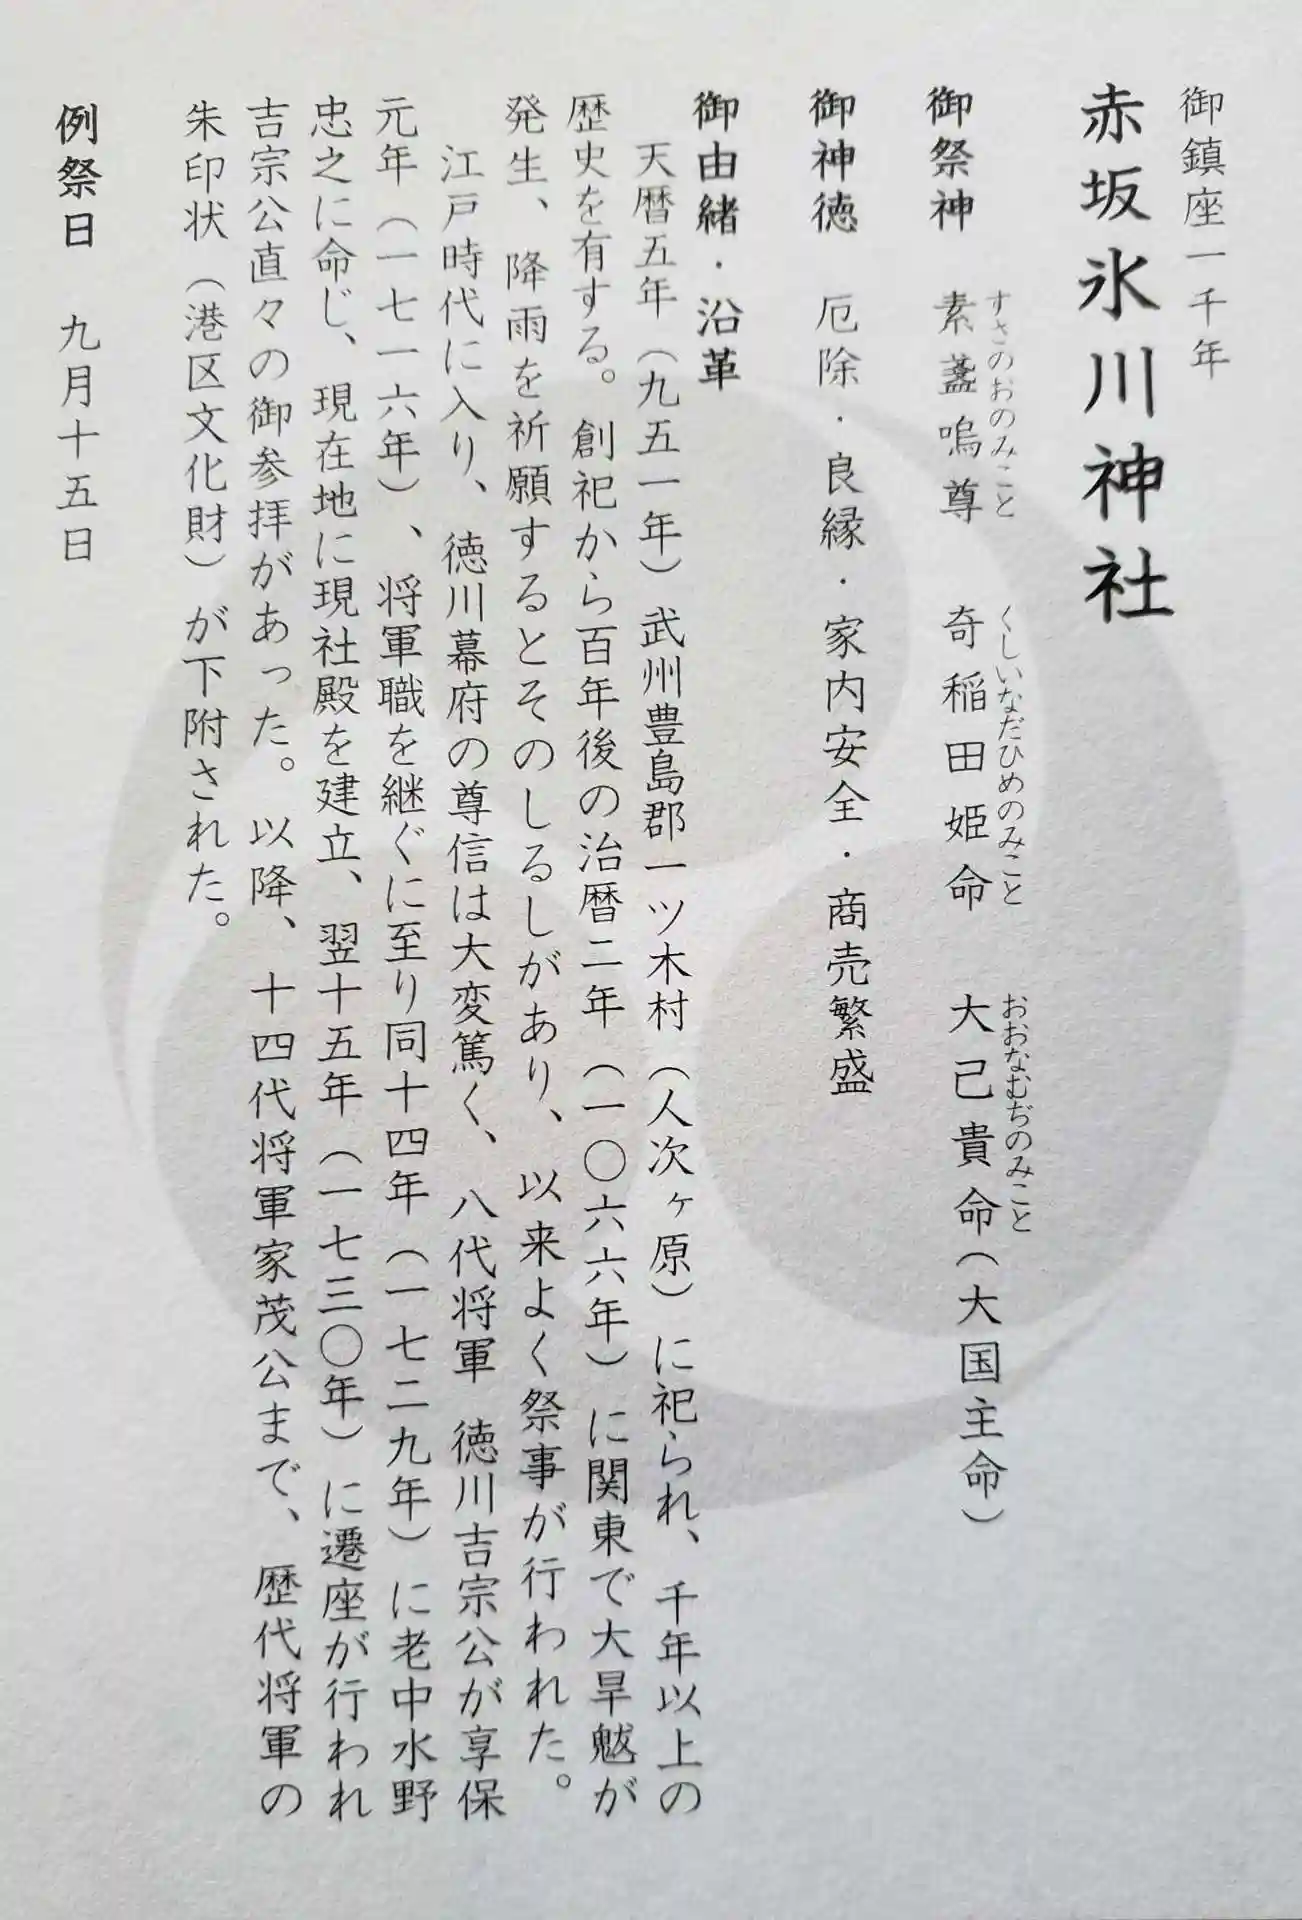 御鎮座一千年
赤坂氷川神社
御祭神 素盞嗚尊 奇稲田姫命 大己貴命(大国主命)
すさのおのみこと くしいなだひめのみこと おおなむぢのみこと
御神徳 厄除・良縁・家内安全・商売繁盛
御由緒・沿革
天暦五年(九五一年)武州豊島郡一ツ木村(人次ヶ原)に祀られ、千年以上の
歴史を有する。創祀から百年後の治暦二年(一〇六六年)に関東で大旱魃が
発生、降雨を祈願するとそのしるしがあり、以来よく祭事が行われた。
江戸時代に入り、徳川幕府の尊信は大変篤く、八代将軍 徳川吉宗公が享保
元年(一七一六年)、将軍職を継ぐに至り同十四年(一七二九年)に老中水野
忠之に命じ、現在地に現社殿を建立、翌十五年(一七三〇年)に遷座が行われ
吉宗公直々の御参拝があった。以降、十四代将軍家茂公まで、歴代将軍の
朱印状(港区文化財)が下附された。
例祭日 九月十五日